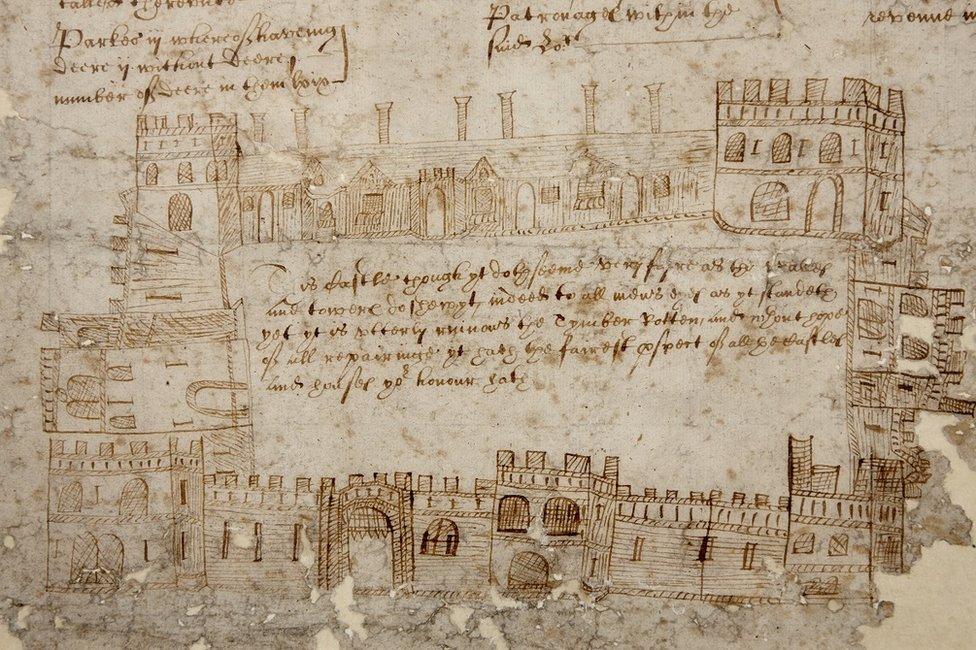 Parkes in whereof having
deere & without deere,
number of deere in them
Patronages within the
said
revenue
This Castle though yt doth seeme very fyre as the
and towers do shew yt, indeed to all mens as yt standeth
yet yt is utterly ruinous the Tymber Rotten, and without hope
of all repairinge yt hath the fairest of all the Castles
and houses yor honour hath